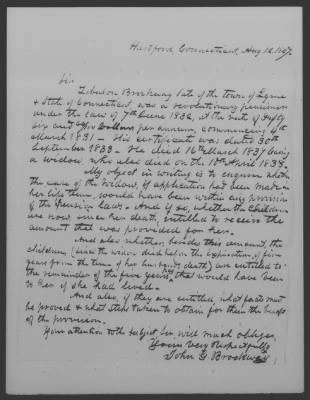 Hartford, Connecticut, Aug 12. 1847.
Sir
Zebulon Brockway late of the town of Lyme
& State of Connecticut, was a revolutionary pensioner
under the law of 7th June 1832, at the rate of Fifty
six and Dollars per annum, commencing 4th
March 1831 - His certificate was dated 30th
September 1833 - He died 16th March 1837 leaving
a widow who also died on the April 1838.
My object in writing is to enquire whether
the case of the widow, if application had been made in
her life time, would have been within any provision
of the Pension laws - And if so, whether the children
are now since her death, intitled to receive the
amount that was provided for her.
And also whether, besides this amount, the
children, (since the widow died before the expiration of five
years from the time of her husband's death) are entitled to
the remainder of the five years, that would have been
to her if she had lived.
And also, if they are entitled, what facts must
be proved & what steps taken to obtain for them the benefit
of the provision.
Your attention to the subject, Sir, will much oblige,
Yours Very Respectfully
John G. Brockway,